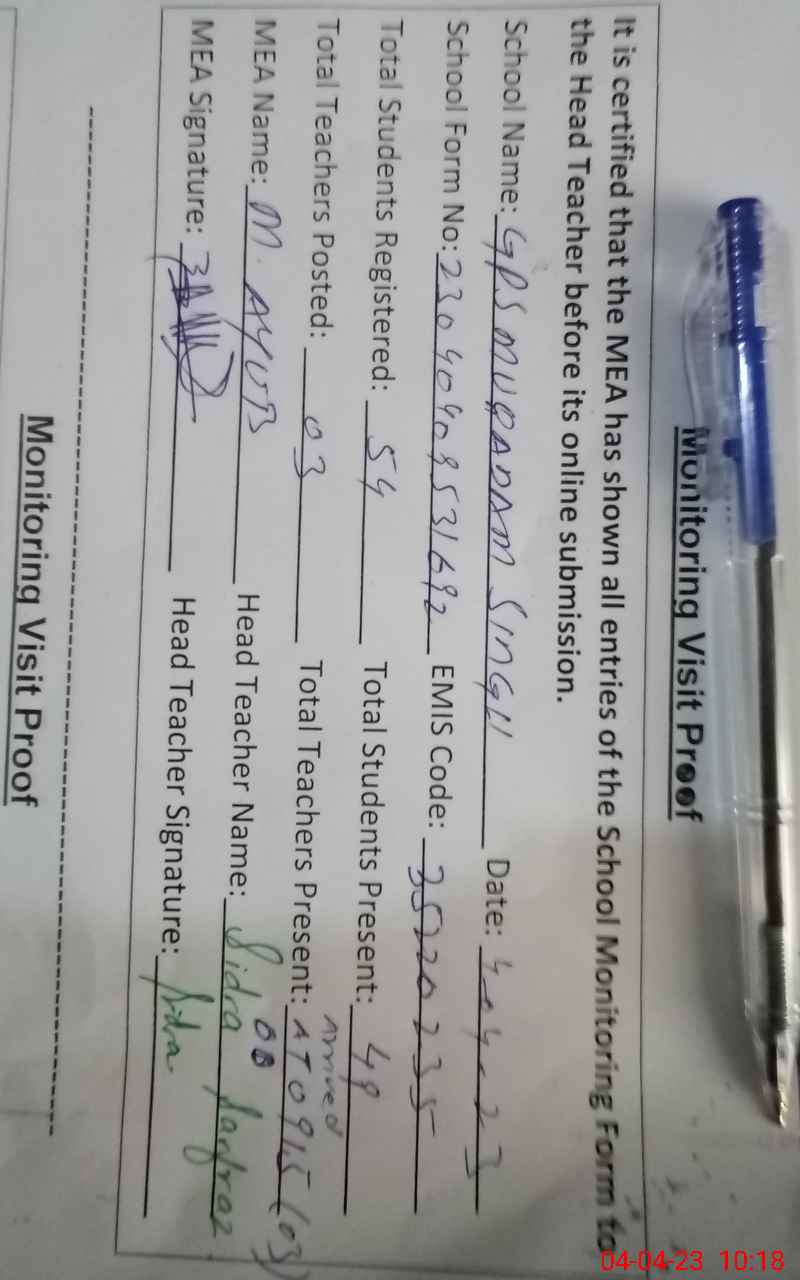 Monitoring Visit Proof
It is certified that the MEA has shown all entries of the School Monitoring Form to
the Head Teacher before its online submission.
School Name: GPS MURADAM SINGH Date: 4-04-23
School Form No: EMIS Code: 35220235
Total Students Registered: 54 Total Students Present: 48
Arrived
Total Teachers Posted: 03 Total Teachers Present: AT 0915 (03)
MEA Name: M. AYUB Head Teacher Name: Sidra Sarfraz
MEA Signature: Head Teacher Signature: Sidra
Monitoring Visit Proof
04-04-23 10:18